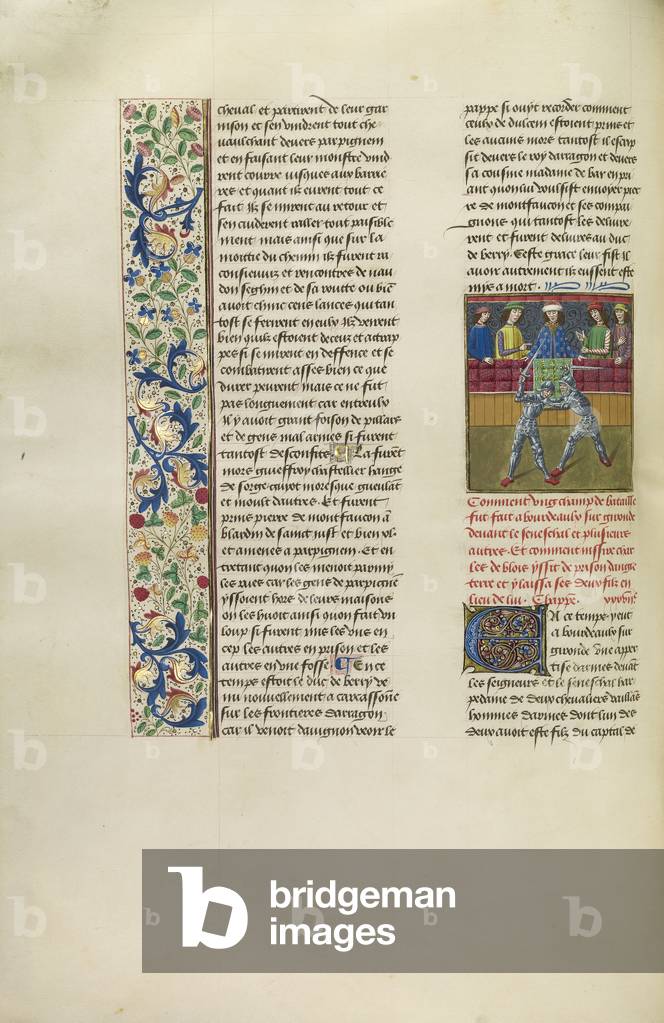 cheval et partirent de leur gar
nison et sen vindrent tout che
vauchant devers parpignem
et en faisant leur monstre vind
rent courre jusques aux barrie
res et quant ilz eurent tout ce
fait ilz se mirent au retour et
sen cuiderent raller tout paisible
ment mais ainsi que sur la
moittie du chemin ilz furent ra
consieuviz et rencontres de nau
don seghin et de sa routte ou bien
avoit chincq cens lances qui tan
tost se ferirent en eulx ilz veirent
bien quilz estoient deceuz et attrap
pes si se mirent en deffence et se
combatirent asses bien ce que
durer peurent mais ce ne fut
pas longuement car entreulx
il y avoit grant foison de pillars
et de gens mal armes si furent
tantost desconfits La furent
mors gieuffroy chastellier hange
de sorge guiot moresque
et moult dautres. Et furent
prins pierre de montfaucon
de sainct just et bien
et amenes a parpignem. Et en
entrant quon les menoit parmy
les rues car les gens de parpigne
yssoient hors de leurs maisons
on les huoit ainsi quon fait un
loup si furent mis les uns en
cep les autres en prison et les
autres en une fosse En ce
temps estoit le duc de berry ve
nu nouvellement a carcassone
sur les frontieres darragon
car il venoit davignon veoir le
pappe si ouyt recorder comment
ceulx de dulcem estoient prins et
les aucuns mors tantost il escrip
sit devers le roy darragon et devers
sa cousine madame de bar en pri
ant quon lui voulsist envoyer pier
re de montfaucon et ses compai
gnons qui tantost les delivre
rent et furent delivres au duc
de berry. Ceste grace leur fist il
avoir autrement ilz eussent este
mis a mort.
Comment ung champ de bataille
fut fait a bourdeaulx sur gironde
devant le seneschal et plusieurs
autres. Et comment messire char
les de blois yssit de prison dangle
terre et y laissa ses deux filz en
lieu de lui. Chappe.
En ce temps y eut
a bourdeaulx sur
gironde une apper
tise darmes devant
les seigneurs et le seneschal har
pedaine de deux chevaliers vaillans
hommes darmes dont lun des
deux avoit este filz du captal de
b bridgeman
images